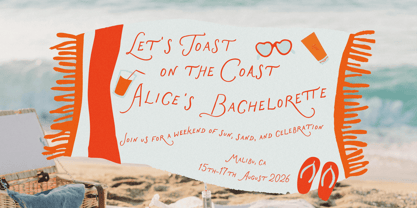 Let's Toast
on the Coast
Alice's Bachelorette
Join us for a weekend of sun, sand, and celebration
Malibu, CA
15th-17th August 2026